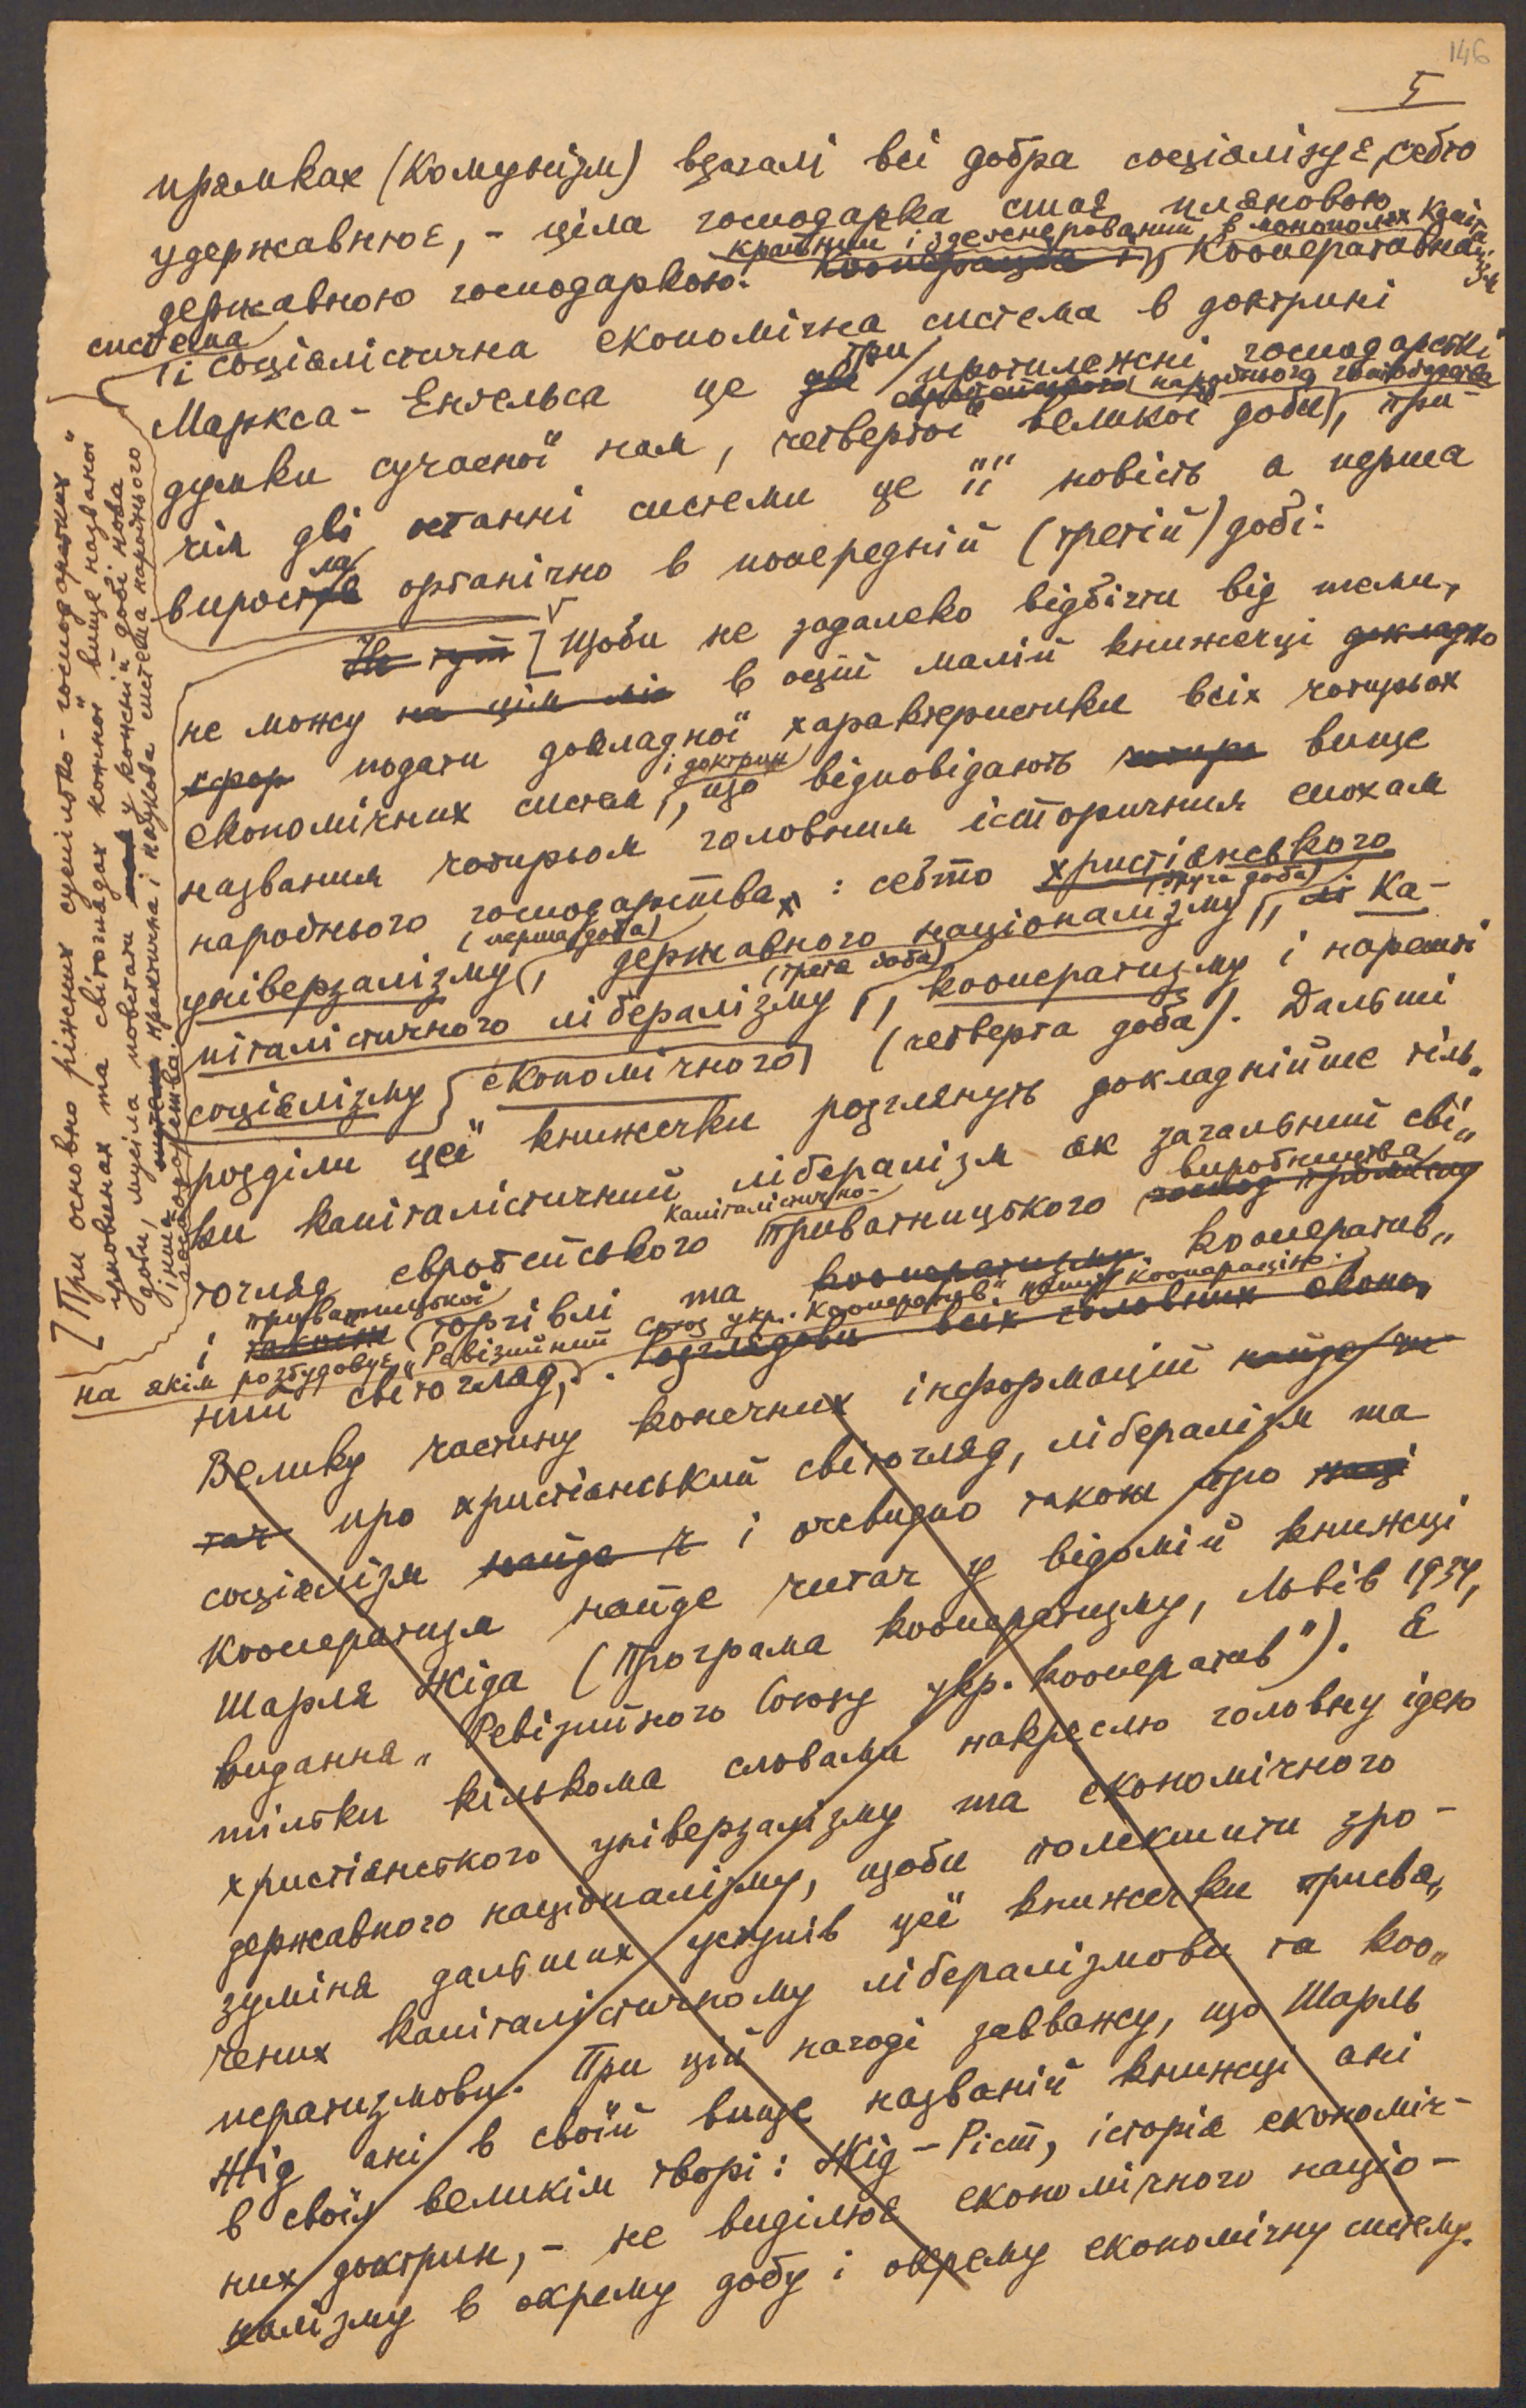 146
5
прямках (Комунізм) взагалі всі добра соціялізує, себто
удержавнює, – ціла господарка стає пляновою
державною господаркою. Кооперативна
крайним і здегенерований в монополях
система
і соціялістична економічна система в доктрині
Маркса - Енгельса це три протилежні господарські
думки сучасної нам, четвертої великої доби, при-
народнього господарства
чім дві останні системи це її новість а перша
виросла органічно в попередній (третій) добі.
Не тут [Щоби не задалеко відбігти від теми,
не можу на цім міс в оцій малій книжечці докладно
подати докладної характеристики всіх чотирьох
економічних систем і доктрин, що відповідають чотири вище
названим чотирьом головним історичним епохам
народнього господарства: себто христіянського
універзалізму (перша доба), державного націоналізму (друга доба), ка-
піталістичного лібералізму (третя доба), кооператизму і нарешті
соціялізму економічного (четверта доба). Дальші
розділи цеї книжечки розглянуть докладнійше тіль„
ки капіталістичний лібералізм як загальний сві„
тогляд європейського капіталістично- приватницького виробництва
і приватницької торгівлі та кооператизму кооператив„
ний світогляд, на якім розбудовує „Ревізийний Союз укр. Кооператив" нашу кооперацію.
розглядови всіх головних еконо„
Велику частину конечних інформацій найде чи-
тач про христіянський світогляд, лібералізм та
соціялізм найде ч і очевидно також про наш
кооператизм найде читач у відомій книжці
Шарля Жіда (Програма кооператизму, Львів 1937,
видання „Ревізийного Союзу укр. кооператив"). Я
тільки кількома словами накреслю головну ідею
христіянського універзалізму та економічного
державного націоналізму, щоби полекшити зро-
зуміня дальших уступів цеї книжечки присвя„
чених капіталістичному лібералізмови та коо„
ператизмови. При цій нагоді завважу, що Шарль
Жід ані в своїй вище названій книжці ані
в своїм великім творі: Жід – Ріст, історія економіч-
них доктрин, – не виділює економічного націо-
налізму в окрему добу і окрему економічну систему.
[При основно ріжних суспільно-господарських
умовинах та світоглядах кожної вище названої
доби, мусіла повстати у кожній добі нова
інша практична і наукова система народнього
господарства.